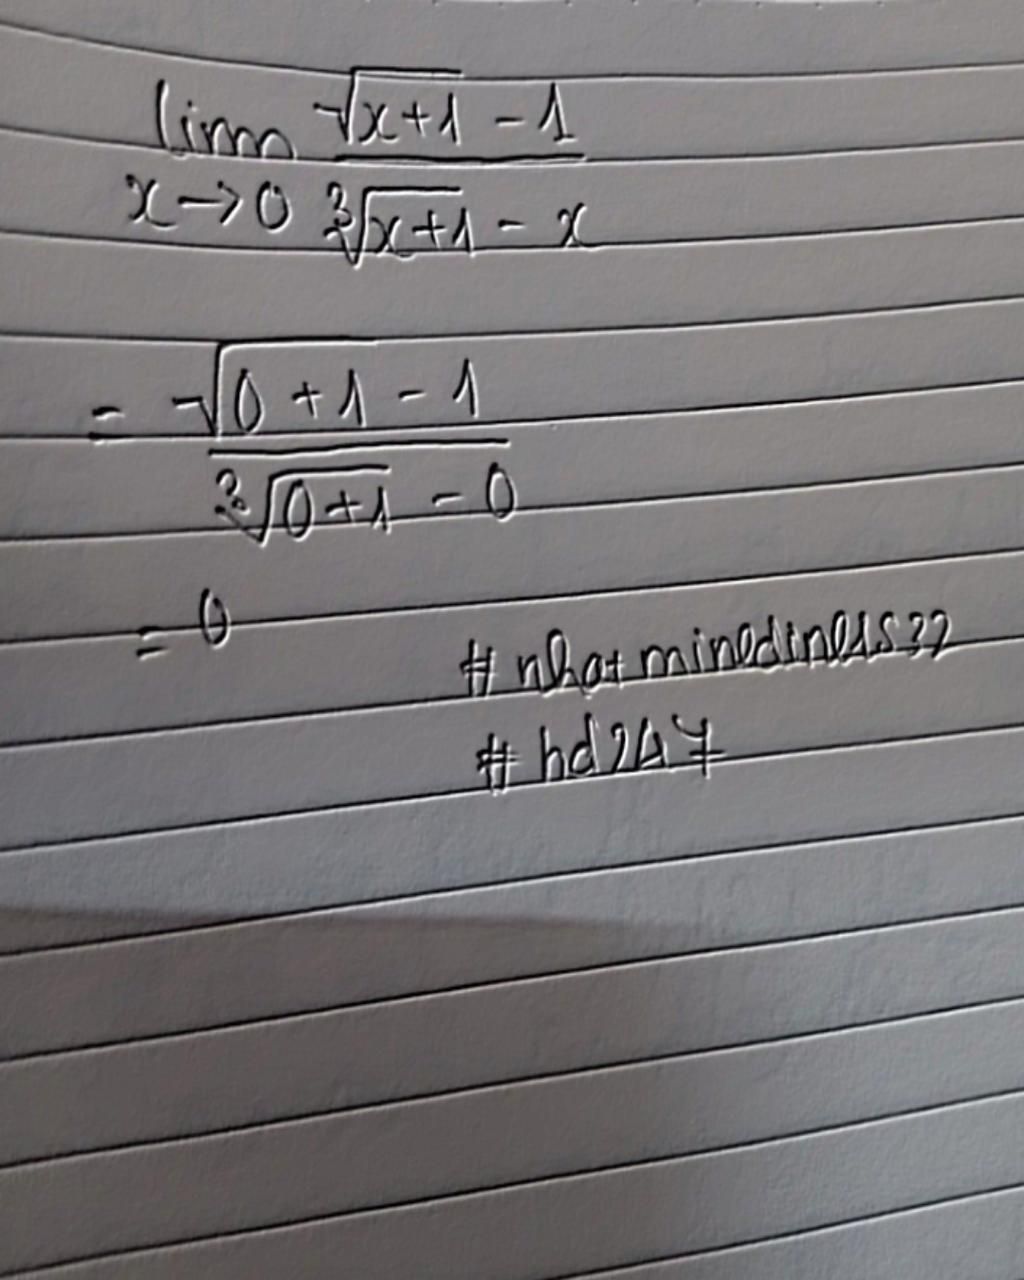 lim √(x+1) - 1
x→0 ∛(x+1) - x
= √(0 + 1 - 1)
∛(0+1) - 0
= 0
# nhatminedineis32
# hd247